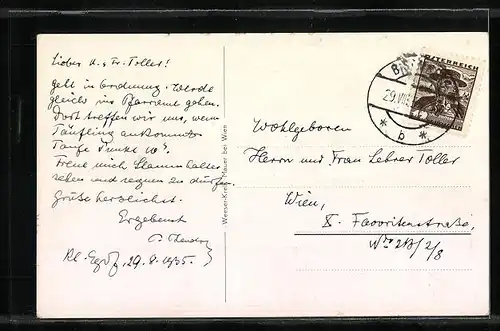 Lieber H. u. Fr. Toller!
Geht in Ordnung. Werde
gleich ins Pfarramt gehen.
Dort treffen wir uns, wenn
Täufling ankommt.
Taufe Punkt 10ʰ.
Freue mich Stammhalter
sehen und segnen zu dürfen
Grüße herzlichst
Ergebenst
P. Theodor
Kl. Egg 29. 8. 1935.
Weeser-Krell, Mauer bei Wien
ÖSTERREICH
29. VIII
* b *
Wohlgeboren
Herrn und Frau Lehrer Toller
Wien,
X. Favoritenstraße,
2/8